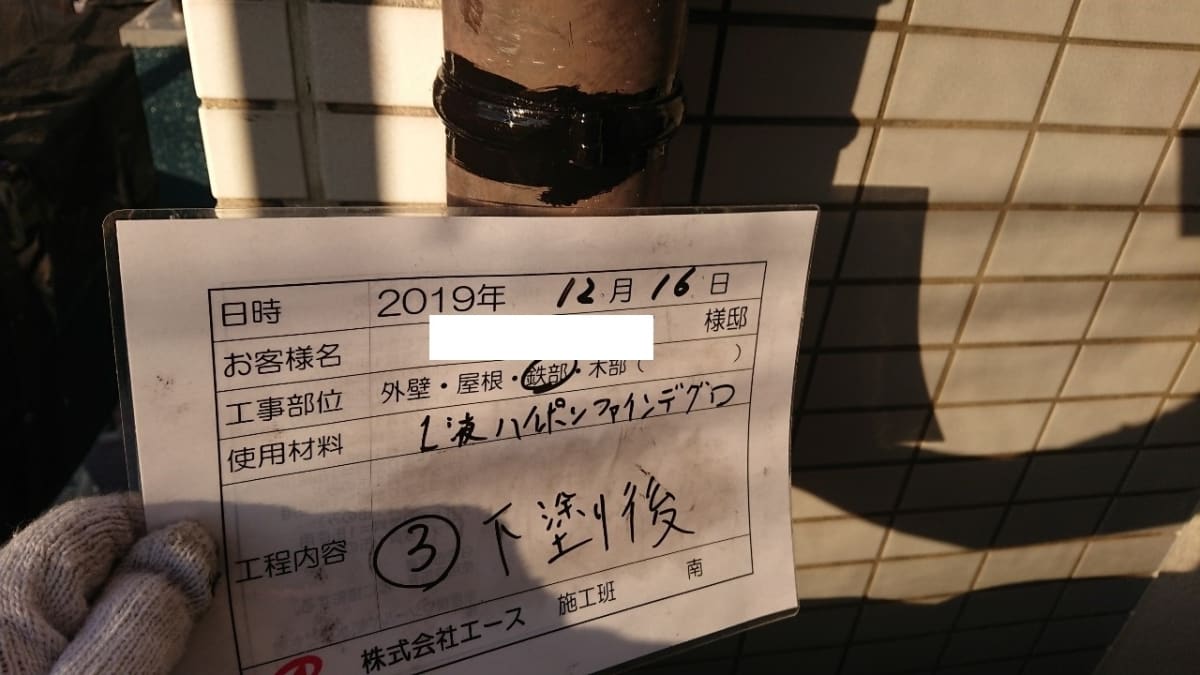 日時 2019年 12月 16日
お客様名 様邸
工事部位 外壁・屋根・鉄部・木部( )
使用材料 1液ハイポンファインデグロ
工程内容 ③下塗り後
株式会社エース 施工班 南